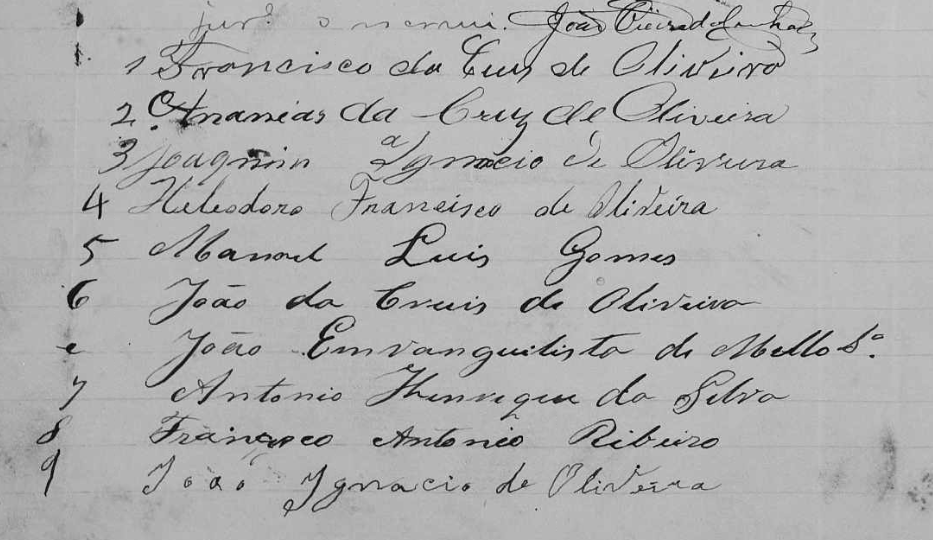 João Vieira da Cunha
1 Francisco da Cruz de Oliveira
2 Ananias da Cruz de Oliveira
3 Joaquim Ignacio de Oliveira
4 Heleodoro Francisco de Oliveira
5 Manoel Luis Gomes
6 João da Cruis de Oliveira
e João Emvanguelista de Mello Sº.
7 Antonio Henrique da Silva
8 Francisco Antonio Ribeiro
9 João Ygnacio de Oliveira